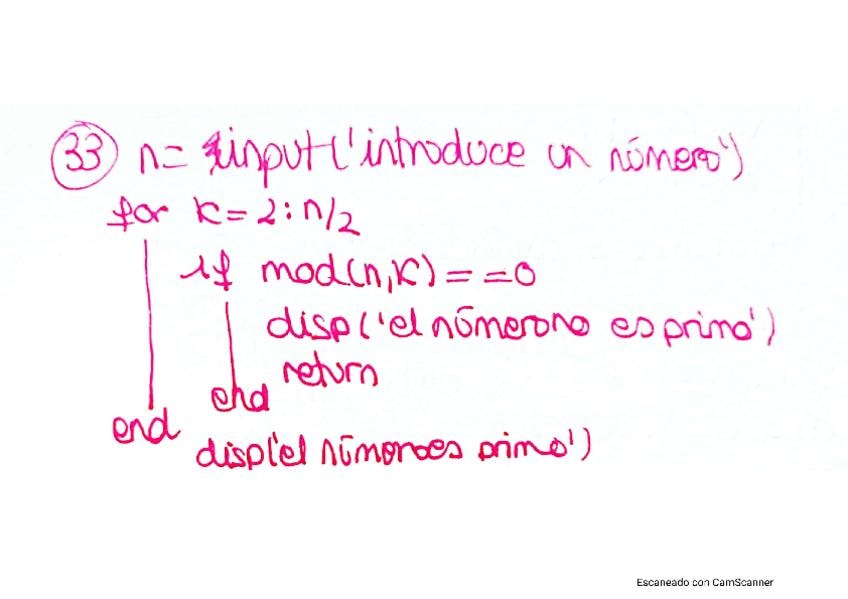 33 n= input('introduce un número')
for k=2:n/2
if mod(n,k)==0
disp('el número no es primo')
return
end
end
disp('el número es primo')
Escaneado con CamScanner